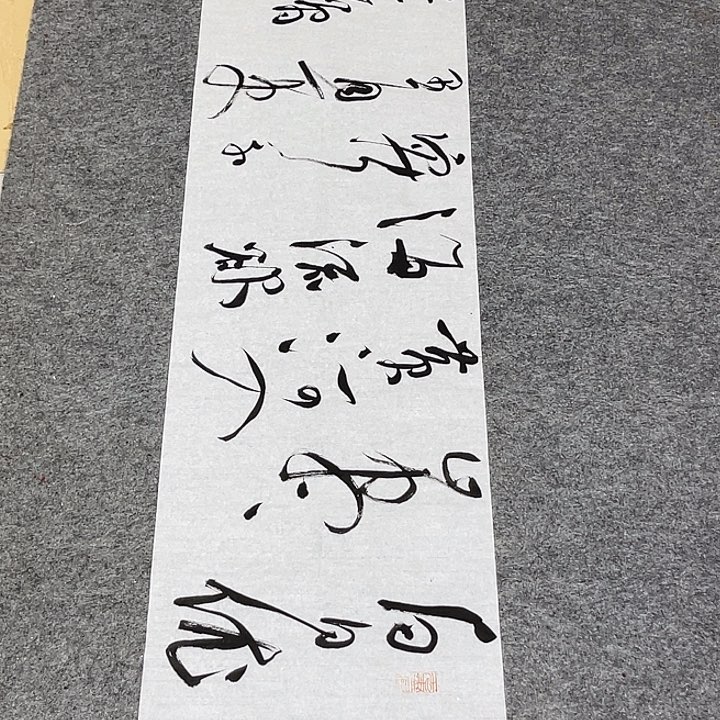 白日依
山尽
黄河入
海流欲
窮千
里目更